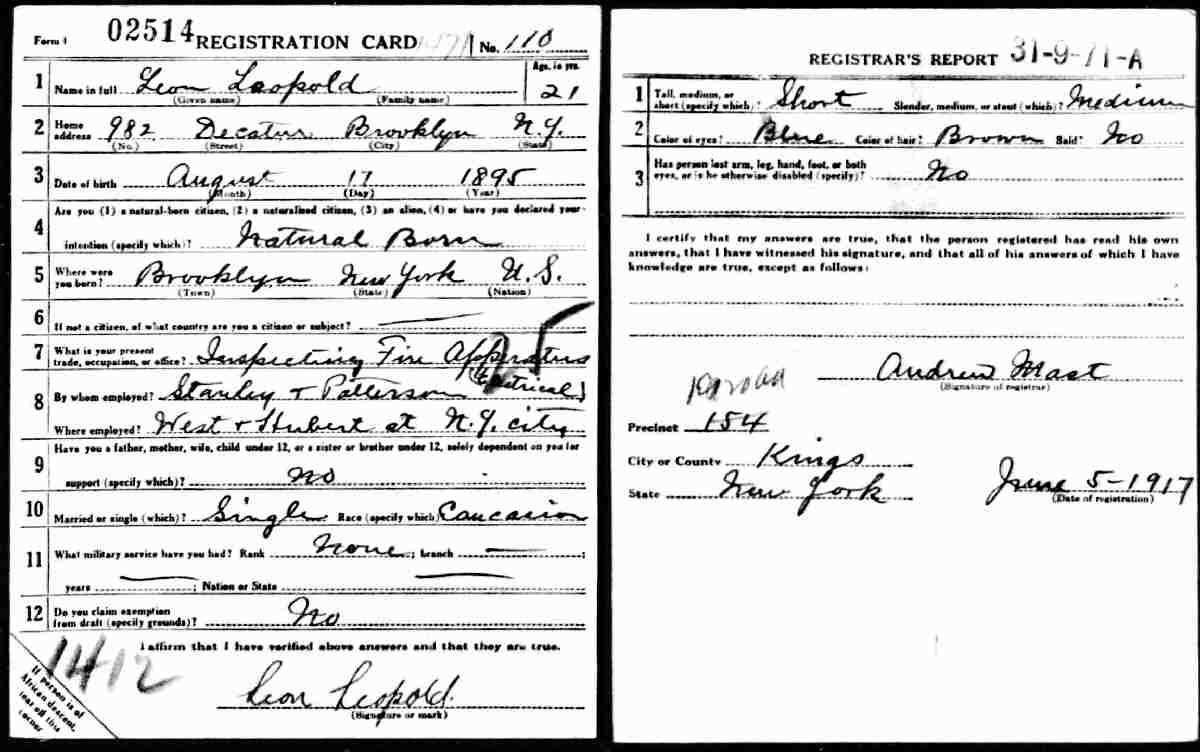 Form 1 02514 REGISTRATION CARD No. 110
1 Name in full Leon Leopold Age, in yrs. 21
(Given name) (Family name)
2 Home address 982 Decatur Brooklyn N.Y.
(No.) (Street) (City) (State)
3 Date of birth August 17 1895
(Month) (Day) (Year)
4 Are you (1) a natural-born citizen, (2) a naturalized citizen, (3) an alien, (4) or have you declared your
intention (specify which)? Natural Born
5 Where were you born? Brooklyn New York U.S.
(Town) (State) (Nation)
6 If not a citizen, of what country are you a citizen or subject?
7 What is your present trade, occupation, or office? Inspecting Fire Apperatus
25
(Electrical)
8 By whom employed? Stanley + Patterson
Where employed? West + Hubert st N.Y. city
9 Have you a father, mother, wife, child under 12, or a sister or brother under 12, solely dependent on you for
support (specify which)? No
10 Married or single (which)? Single Race (specify which) Caucasion
11 What military service have you had? Rank None; branch ;
years ; Nation or State
12 Do you claim exemption from draft (specify grounds)? No
I affirm that I have verified above answers and that they are true.
1412
Leon Leopold.
(Signature or mark)
If person is of
African descent,
tear off this
corner
REGISTRAR'S REPORT 31-9-71-A
1 Tall, medium, or short (specify which)? Short Slender, medium, or stout (which)? Medium
2 Color of eyes? Blue Color of hair? Brown Bald? No
3 Has person lost arm, leg, hand, foot, or both eyes, or is he otherwise disabled (specify)? No
I certify that my answers are true, that the person registered has read his own
answers, that I have witnessed his signature, and that all of his answers of which I have
knowledge are true, except as follows:
Andrew Mast
(Signature of registrar)
Precinct 154
City or County Kings
State New York
June 5-1917
(Date of registration)